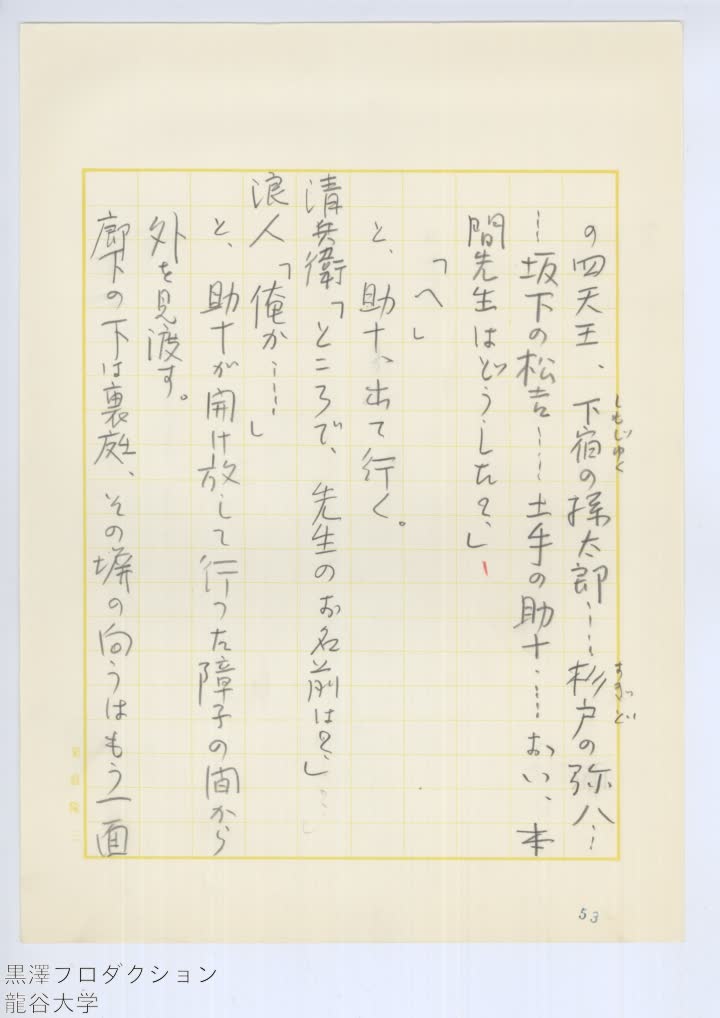 の四天王、下宿の孫太郎……杉戸の弥八…
しもじゅく
すぎど
…坂下の松吉……土手の助十……おい、本
間先生はどうした？」
「へ」
と、助十、出て行く。
清兵衛「ところで、先生のお名前は？」
浪人「俺か……」
と、助十が開け放して行った障子の間から
外を見渡す。
廊下の下は裏庭、その塀の向うはもう一面
53
黒澤プロダクション
龍谷大学